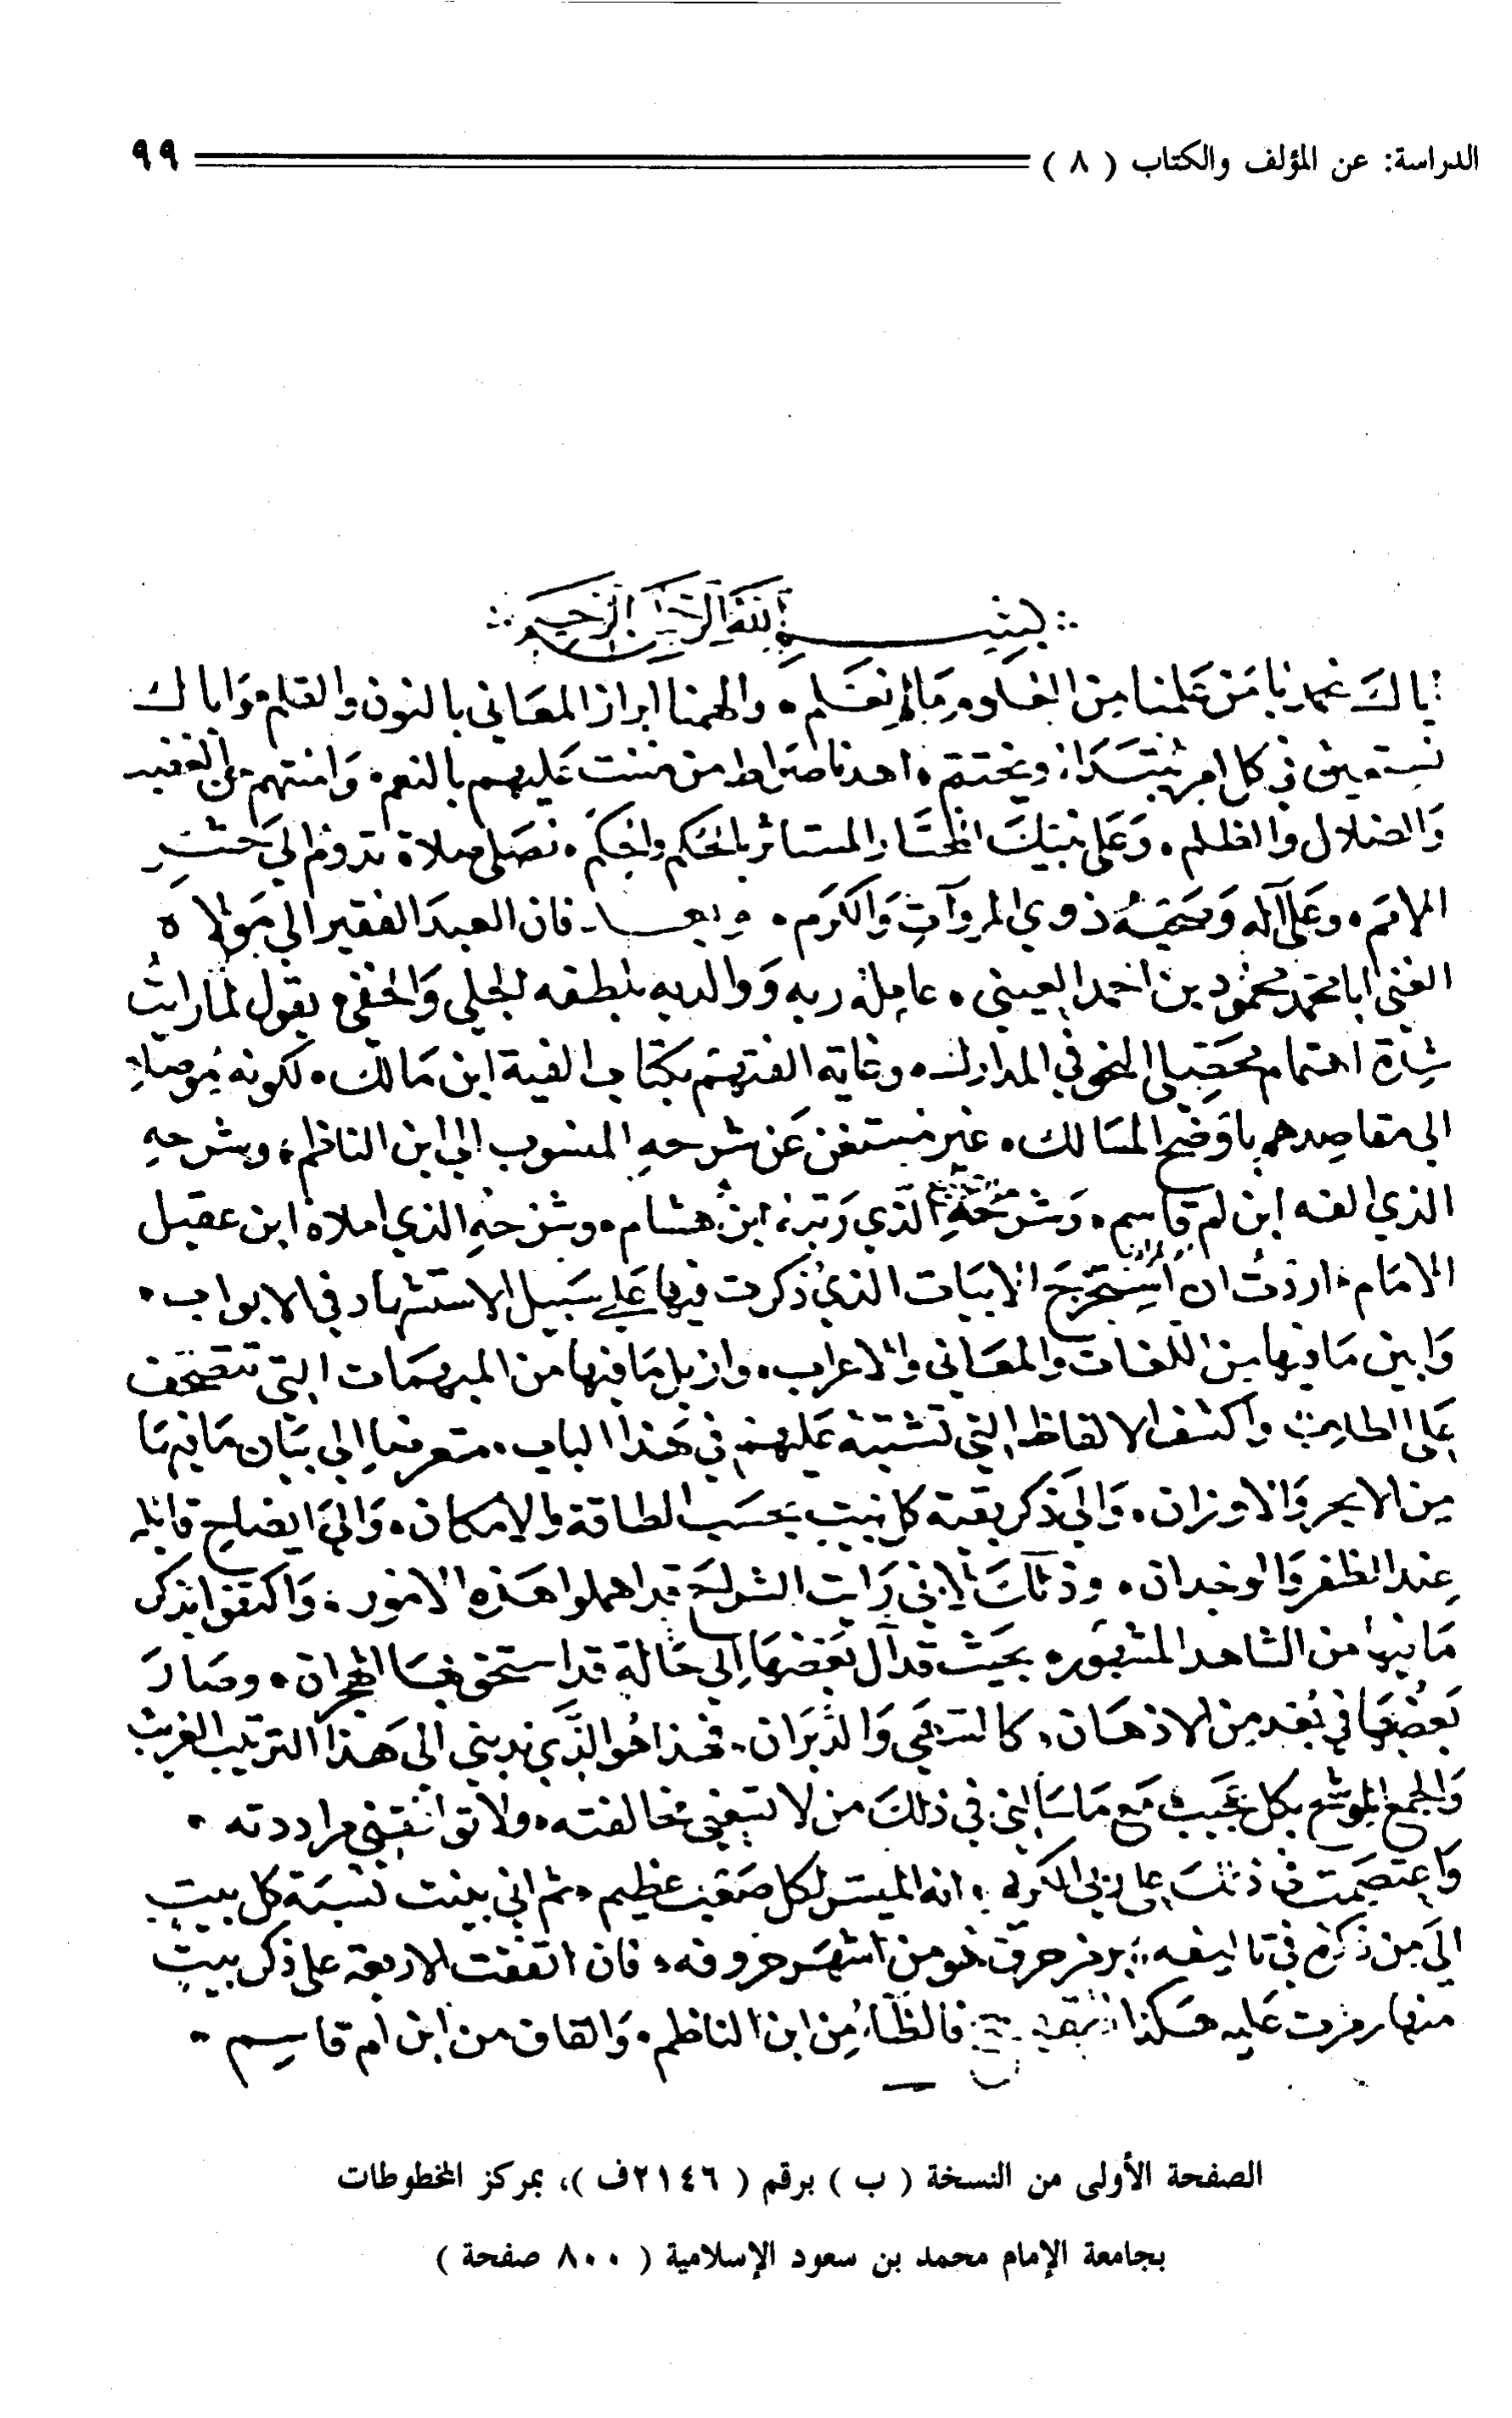 الدراسة: عن المؤلف والكتاب ( ٨ ) ٩٩
بسم الله الرحمن الرحيم
اياك نحمد يا من علمنا من العلوم ما لم نعلم والهمنا ابراز المعاني بالنون والقلم واياك
نستعين في كل امر يبتدا ويختتم اهدنا صراط من مننت عليهم بالنعم وامنتهم من الغضب
والضلال والظلم وعلى نبيك المختار المستاثر بالحكم والحكم نصلي صلاة تدوم الى حشر
الامم وعلى آله وصحبه ذوي المروآت والكرم وبعد فان العبد الفقير الى مولاه
الغني ابا محمد محمود بن احمد العيني عامله ربه ووالديه بلطفه الجلي والخفي يقول لما رايت
شدة اهتمام محصلي النحو في المدارك وغاية الفتهم بكتاب الفية ابن مالك لكونه موصلا
الى مقاصدهم باوضح المسالك غير مستغن عن شرحه المنسوب الى ابن الناظم وشرحه
الذي الفه ابن ام قاسم وشرحه الذي رتبه ابن هشام وشرحه الذي املاه ابن عقيل
الامام اردت ان استخرج الابيات الذي ذكرت فيها على سبيل الاستشهاد في الابواب
وابين ما فيها من اللغات والمعاني والاعراب وازيل ما فيها من المبهمات التي تتصحف
على الطلاب واكشف الالفاظ التي تشتبه عليهم في هذا الباب متعرضا الى بيان ما فيها
من الابحر والاوزان والى ذكر بقية كل بيت بحسب الطاقة والامكان والى ايضاح قائله
عند الظفر والوجدان وذلك لاني رايت الشراح قد اهملوا هذه الامور واكتفوا بذكر
ما فيها من الشاهد المشهور بحيث قد آل بعضها الى حالة قد استحق بها الهجران وصار
بعضها في بعد من الاذهان كالسهى والدبران فهذا هو الذي ندبني الى هذا الترتيب الغريب
والجمع الموشح بكل عجيب مع ما سالني في ذلك من لا تسعني مخالفته ولا توافقني مراددته
واعتصمت في ذلك على ربي الكريم انه الميسر لكل صعب عظيم ثم اني بينت نسبة كل بيت
الى من ذكره في تاليفه برمز حرف هو من اشهر حروفه فان اتفقت الاربعة على ذكر بيت
منها رمزت عليه هكذا فالظاء من ابن الناظم والقاف من ابن ام قاسم
الصفحة الأولى من النسخة ( ب ) برقم ( ٢١٤٦ف )، بمركز المخطوطات
بجامعة الإمام محمد بن سعود الإسلامية ( ٨٠٠ صفحة )